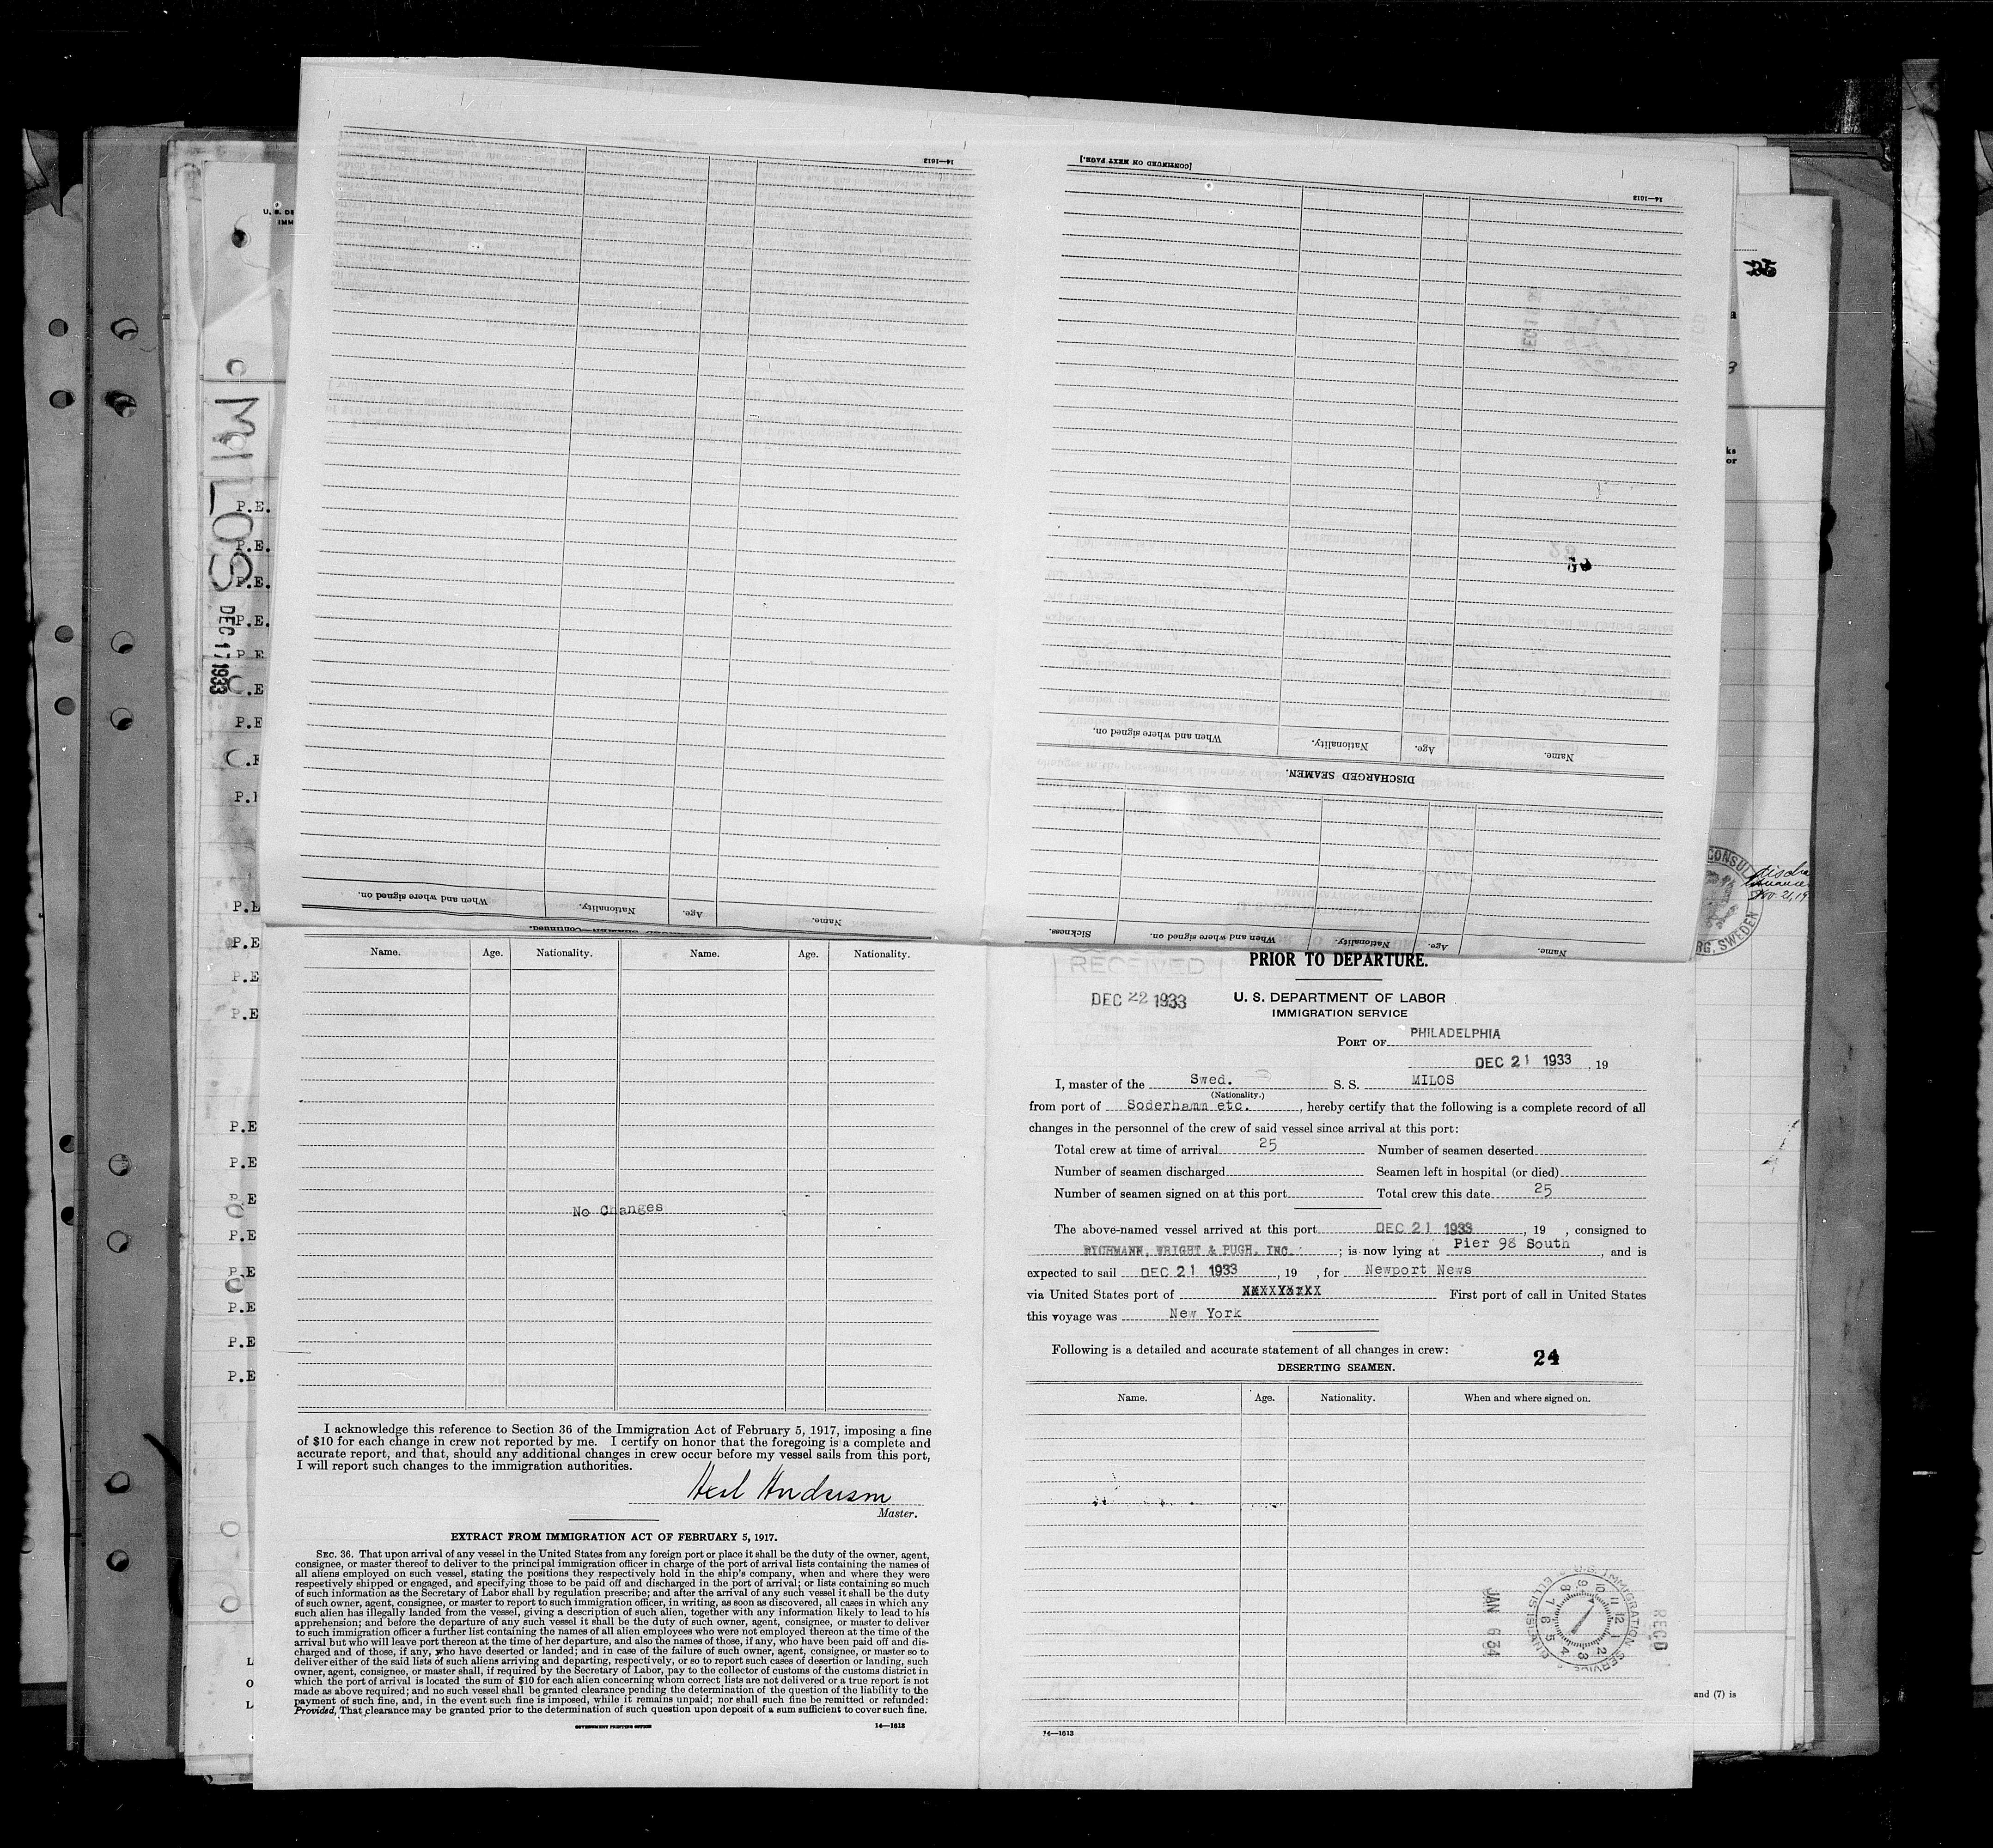 14—1613
[CONTINUED ON NEXT PAGE.]
14—1613
U. S. DE
IMM
MILOS
DEC 17 1933
P.E.
P.E.
P.E.
P.E.
When and where signed on.
Nationality.
Age.
Name.
DISCHARGED SEAMEN.
When and where signed on.
Nationality.
Age.
Name.
Sickness.
When and where signed on.
Nationality.
Age.
Name.
Name.
Age.
Nationality.
Name.
Age.
Nationality.
No Changes
I acknowledge this reference to Section 36 of the Immigration Act of February 5, 1917, imposing a fine
of $10 for each change in crew not reported by me. I certify on honor that the foregoing is a complete and
accurate report, and that, should any additional changes in crew occur before my vessel sails from this port,
I will report such changes to the immigration authorities.
Anderson
Master.
EXTRACT FROM IMMIGRATION ACT OF FEBRUARY 5, 1917.
SEC. 36. That upon arrival of any vessel in the United States from any foreign port or place it shall be the duty of the owner, agent,
consignee, or master thereof to deliver to the principal immigration officer in charge of the port of arrival lists containing the names of
all aliens employed on such vessel, stating the positions they respectively hold in the ship's company, when and where they were
respectively shipped or engaged, and specifying those to be paid off and discharged in the port of arrival; or lists containing so much
of such information as the Secretary of Labor shall by regulation prescribe; and after the arrival of any such vessel it shall be the duty
of such owner, agent, consignee, or master to report to such immigration officer, in writing, as soon as discovered, all cases in which any
such alien has illegally landed from the vessel, giving a description of such alien, together with any information likely to lead to his
apprehension; and before the departure of any such vessel it shall be the duty of such owner, agent, consignee, or master to deliver
to such immigration officer a further list containing the names of all alien employees who were not employed thereon at the time of the
arrival but who will leave port thereon at the time of her departure, and also the names of those, if any, who have been paid off and dis-
charged and of those, if any, who have deserted or landed; and in case of the failure of such owner, agent, consignee, or master so to
deliver either of the said lists of such aliens arriving and departing, respectively, or so to report such cases of desertion or landing, such
owner, agent, consignee, or master shall, if required by the Secretary of Labor, pay to the collector of customs of the customs district in
which the port of arrival is located the sum of $10 for each alien concerning whom correct lists are not delivered or a true report is not
made as above required; and no such vessel shall be granted clearance pending the determination of the question of the liability to the
payment of such fine, and, in the event such fine is imposed, while it remains unpaid; nor shall such fine be remitted or refunded:
Provided, That clearance may be granted prior to the determination of such question upon deposit of a sum sufficient to cover such fine.
GOVERNMENT PRINTING OFFICE
14—1613
PRIOR TO DEPARTURE.
RECEIVED
DEC 22 1933
U. S. DEPARTMENT OF LABOR
IMMIGRATION SERVICE
PORT OF PHILADELPHIA
DEC 21 1933, 19
I, master of the Swed. S. S. MILOS
(Nationality.)
from port of Soderhamn etc., hereby certify that the following is a complete record of all
changes in the personnel of the crew of said vessel since arrival at this port:
Total crew at time of arrival 25 Number of seamen deserted
Number of seamen discharged Seamen left in hospital (or died)
Number of seamen signed on at this port Total crew this date 25
The above-named vessel arrived at this port DEC 21 1933, 19 , consigned to
WRIGHT & PUGH, INC. ; is now lying at Pier 98 South, and is
expected to sail DEC 21 1933, 19 , for Newport News
via United States port of First port of call in United States
this voyage was New York
Following is a detailed and accurate statement of all changes in crew:
24
DESERTING SEAMEN.
Name.
Age.
Nationality.
When and where signed on.
REC'D
U.S. IMMIGRATION SERVICE
ELLIS ISLAND
JAN 6 34
14—1613
CONSUL
SWEDEN
and (7) is